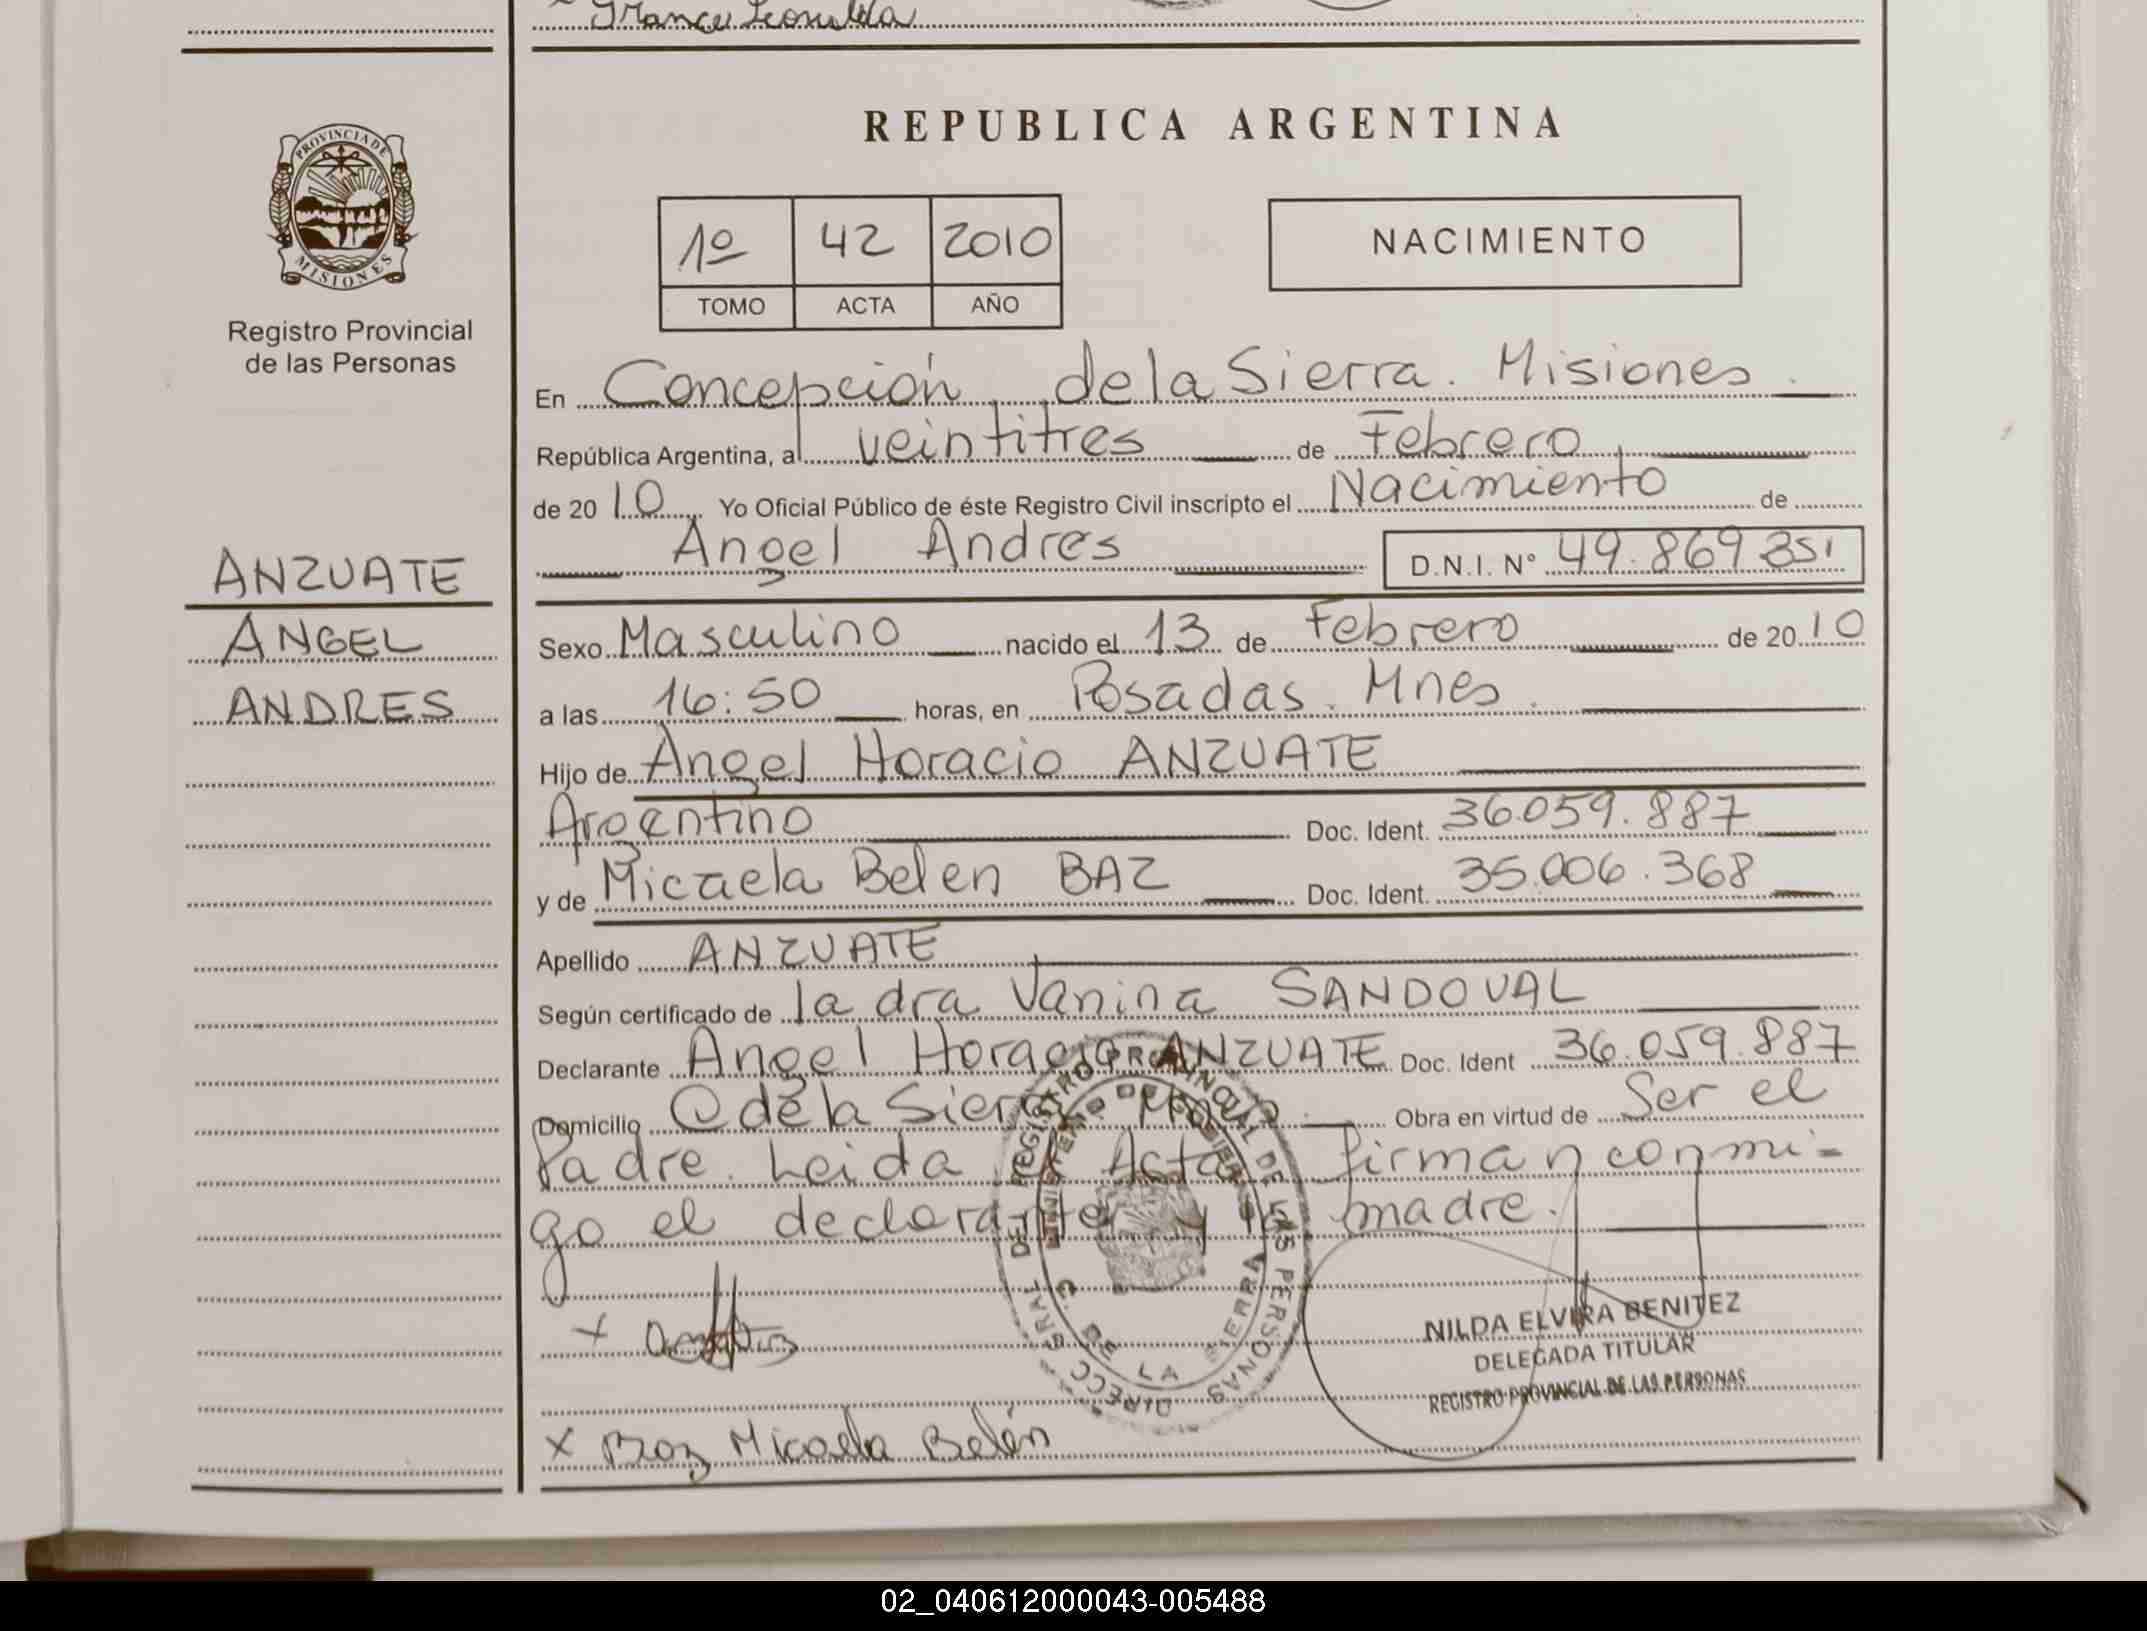 Franco Leonilda
PROVINCIA DE
MISIONES
Registro Provincial
de las Personas
ANZUATE
ANGEL
ANDRES
REPUBLICA ARGENTINA
1º 42 2010
TOMO ACTA AÑO
NACIMIENTO
En Concepción de la Sierra. Misiones.
República Argentina, a veintitres de Febrero
de 20 10 Yo Oficial Público de éste Registro Civil inscripto el Nacimiento de
Angel Andres D.N.I. Nº 49.869.351
Sexo Masculino nacido el 13 de Febrero de 20 10
a las 16:50 horas, en Posadas. Mnes.
Hijo de Angel Horacio ANZUATE
Argentino Doc. Ident. 36.059.887
y de Micaela Belen BAZ Doc. Ident. 35.006.368
Apellido ANZUATE
Según certificado de la dra Vanina SANDOVAL
Declarante Angel Horacio ANZUATE Doc. Ident 36.059.887
Domicilio C de la Sierra Mnes. Obra en virtud de Ser el
Padre. Leida el Acta firman conmi-
go el declarante y la madre.
DIRECC. GRAL. DEL REGISTRO PROVINCIAL DE LAS PERSONAS
MINISTERIO DE GOBIERNO
C. DE LA SIERRA
NILDA ELVIRA BENITEZ
DELEGADA TITULAR
REGISTRO PROVINCIAL DE LAS PERSONAS
x
x Baz Micaela Belén
02_040612000043-005488